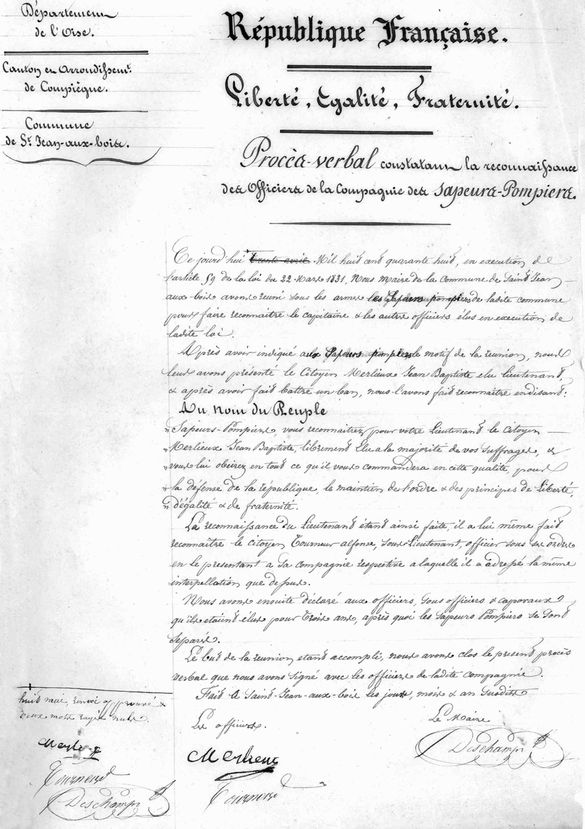 Département
de l'Oise.
Canton et Arrondissemt.
de Compiègne.
Commune
de St. Jean-aux-bois.
République Française.
Liberté, Egalité, Fraternité.
Procès-verbal constatant la reconnaissance
des Officiers de la Compagnie des Sapeurs-Pompiers.
Ce jourd'hui trente avril Mil huit cent quarante huit, en execution de
l'article 59 de la loi du 22 Mars 1831, Nous Maire de la Commune de Saint Jean
aux bois avons réuni sous les armes les Sapeurs pompiers de ladite commune
pour faire reconnaitre le capitaine & les autres officiers élus en execution de
ladite loi.
Après avoir indiqué aux Sapeurs pompiers le motif de la reunion, nous
leur avons présenté le Citoyen Merlieux Jean Baptiste elu lieutenant,
& après avoir fait battre un ban, nous l'avons fait reconnaitre en disant:
Au Nom du Peuple
Sapeurs-Pompiers, vous reconnaitrez pour votre lieutenant le Citoyen
Merlieux Jean Baptiste, librement élu a la majorité de vos suffrages, &
vous lui obeirez en tout ce qu'il vous commandera en cette qualité, pour
la défense de la république, le maintien de l'ordre & des principes de liberté,
d'égalité & de fraternité.
La reconnaissance du lieutenant etant ainsi faite, il a lui même fait
reconnaitre le citoyen Tourneur alfonse, sous-Lieutenant, officier sous ses ordres
en le presentant a sa compagnie respective a laquelle il a adressé la même
interpellation que dessus.
Nous avons ensuite déclaré aux officiers, sous officiers & caporaux
qu'ils etaient élus pour trois ans, après quoi les Sapeurs Pompiers se sont
separés.
Le but de la reunion etant accompli, nous avons clos le present procès
verbal que nous avons signé avec les officiers de ladite compagnie.
Fait à Saint-Jean-aux-bois les jour, mois & an susdits
Les officiers.
Le Maire
Deschamps
Merlieux
Tourneur
huit mai, renvoi approuvé
deux mots rayés nuls.
Merlieux
Tourneur
Deschamps